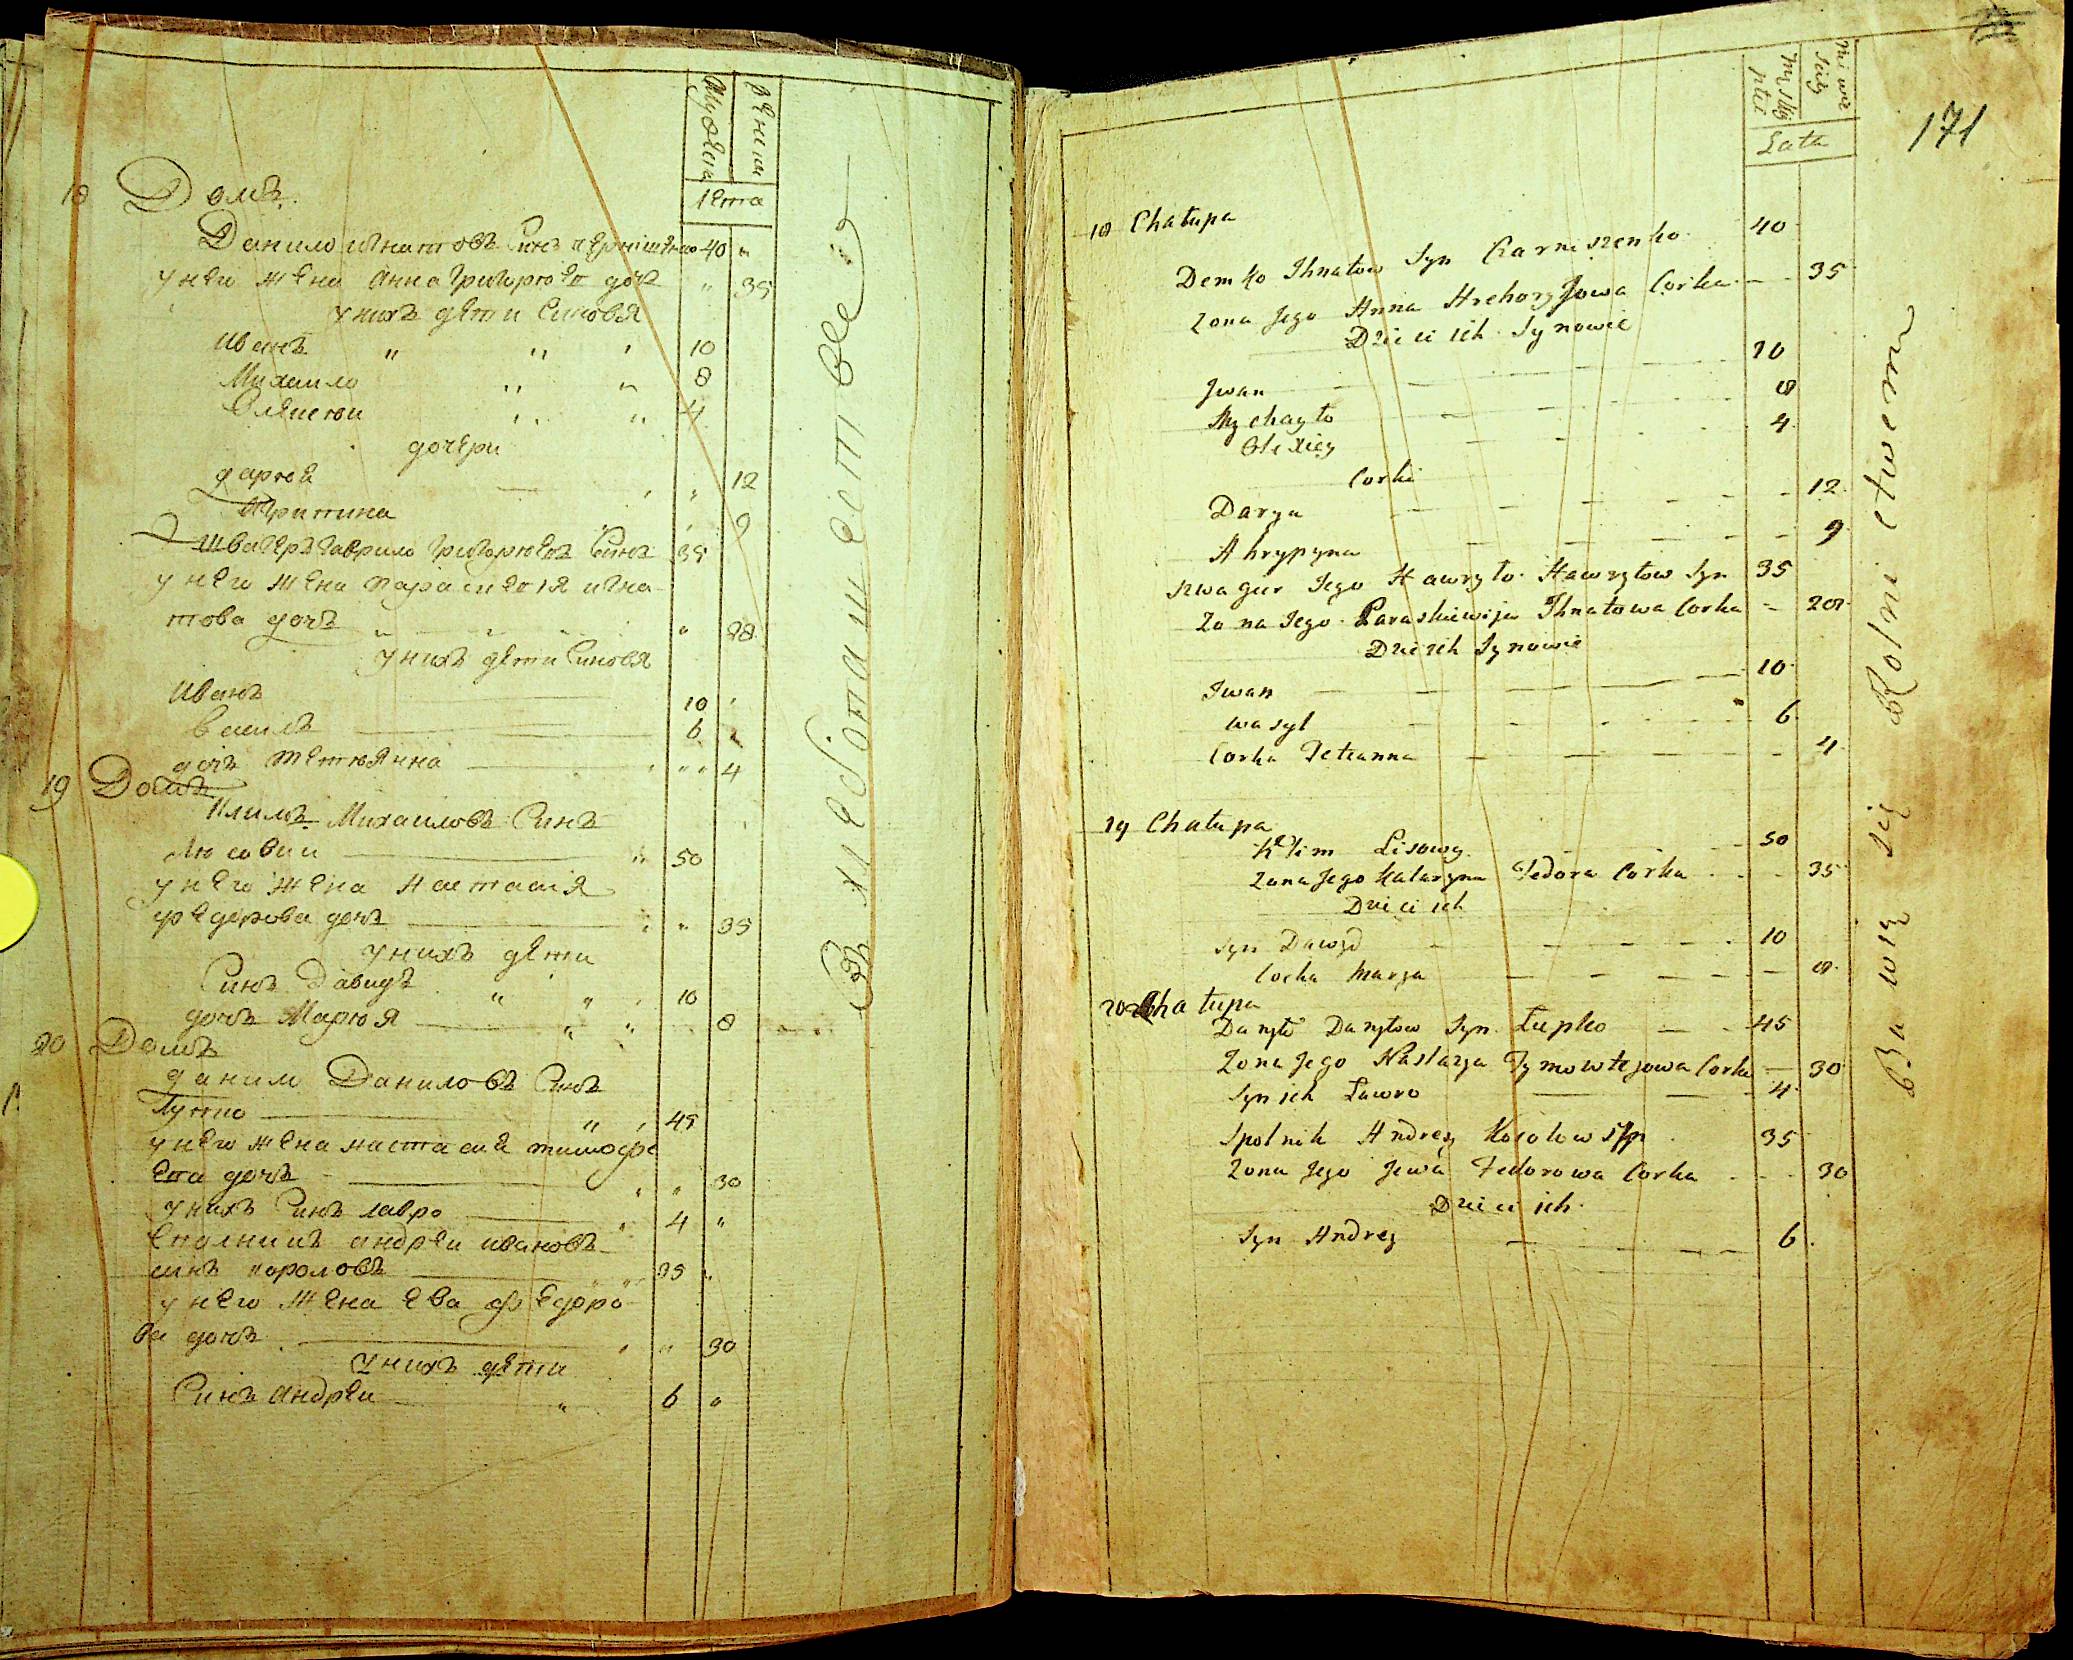 Мужеска
Женска
лета
18 Домъ
Данило игнатовъ Синъ чернишенко 40 "
у него жена Анна григорюва дочъ " 35
у нихъ дети Синовя
Иванъ " " " 10
Михаило " " 8
Олексюи " " 4
дочери
дарюя " 12
Агрипина " 9
швагеръ гаврило григорювъ Синъ 35
у него жена параскевия игна-
това дочъ " 28
у нихъ дети Синовя
Иванъ 10
василъ 6
дочъ тетюянна " " 4
19 Домъ
Климъ Михаиловъ Синъ
50
у него жена Настасия
федорова дочъ " 35
у нихъ дети
Синъ Давидъ " " 10
дочъ Марюя " " 8
20 Домъ
данило Даниловъ Синъ
Лупко " 45
у него жена настасия тимофе
ева дочъ " " 30
у нихъ Синъ лавро " 4 "
Сполникъ андреи ивановъ
синъ короловъ 35 "
у него жена Ева федоро
ва дочъ " " 30
у нихъ дети
Синъ Андреи " 6 "
В хлебопашестве
171
Męskiey płci
Niewieściey
Lata
18 Chałupa
Demko Ihnatow Syn Czarniszenko 40
Zona Jego Anna Hrehoryjowa Corka 35
Dzieci ich Synowie
Jwan 10
Mychayło 8
Olexiey 4
Corki
Darya 12
Ahrypyna 9
szwagier Jego Hawryło Hawryłow Syn 35
Zona Jego Paraskiewija Ihnatowa Corka 28
Dzieich Synowie
Iwan 10
wasyl 6
Corka Tetianna 4
19 Chałupa
Klim Lisowy 50
Zona Jego Katarzyna Fedora Corka 35
Dzieci ich
Syn Dawyd 10
Corka Marya 8
20 Chałupa
Danyło Danyłow Syn Łupko 45
Zona Jego Nastazya Tymowtejowa Corka 30
Syn ich Ławro 4
Spolnik Andrey Korolow Syn 35
Zona Jego Jewa Fedorowa Corka 30
Dzieci ich
Syn Andrey 6
Bawią się Rolnictwem